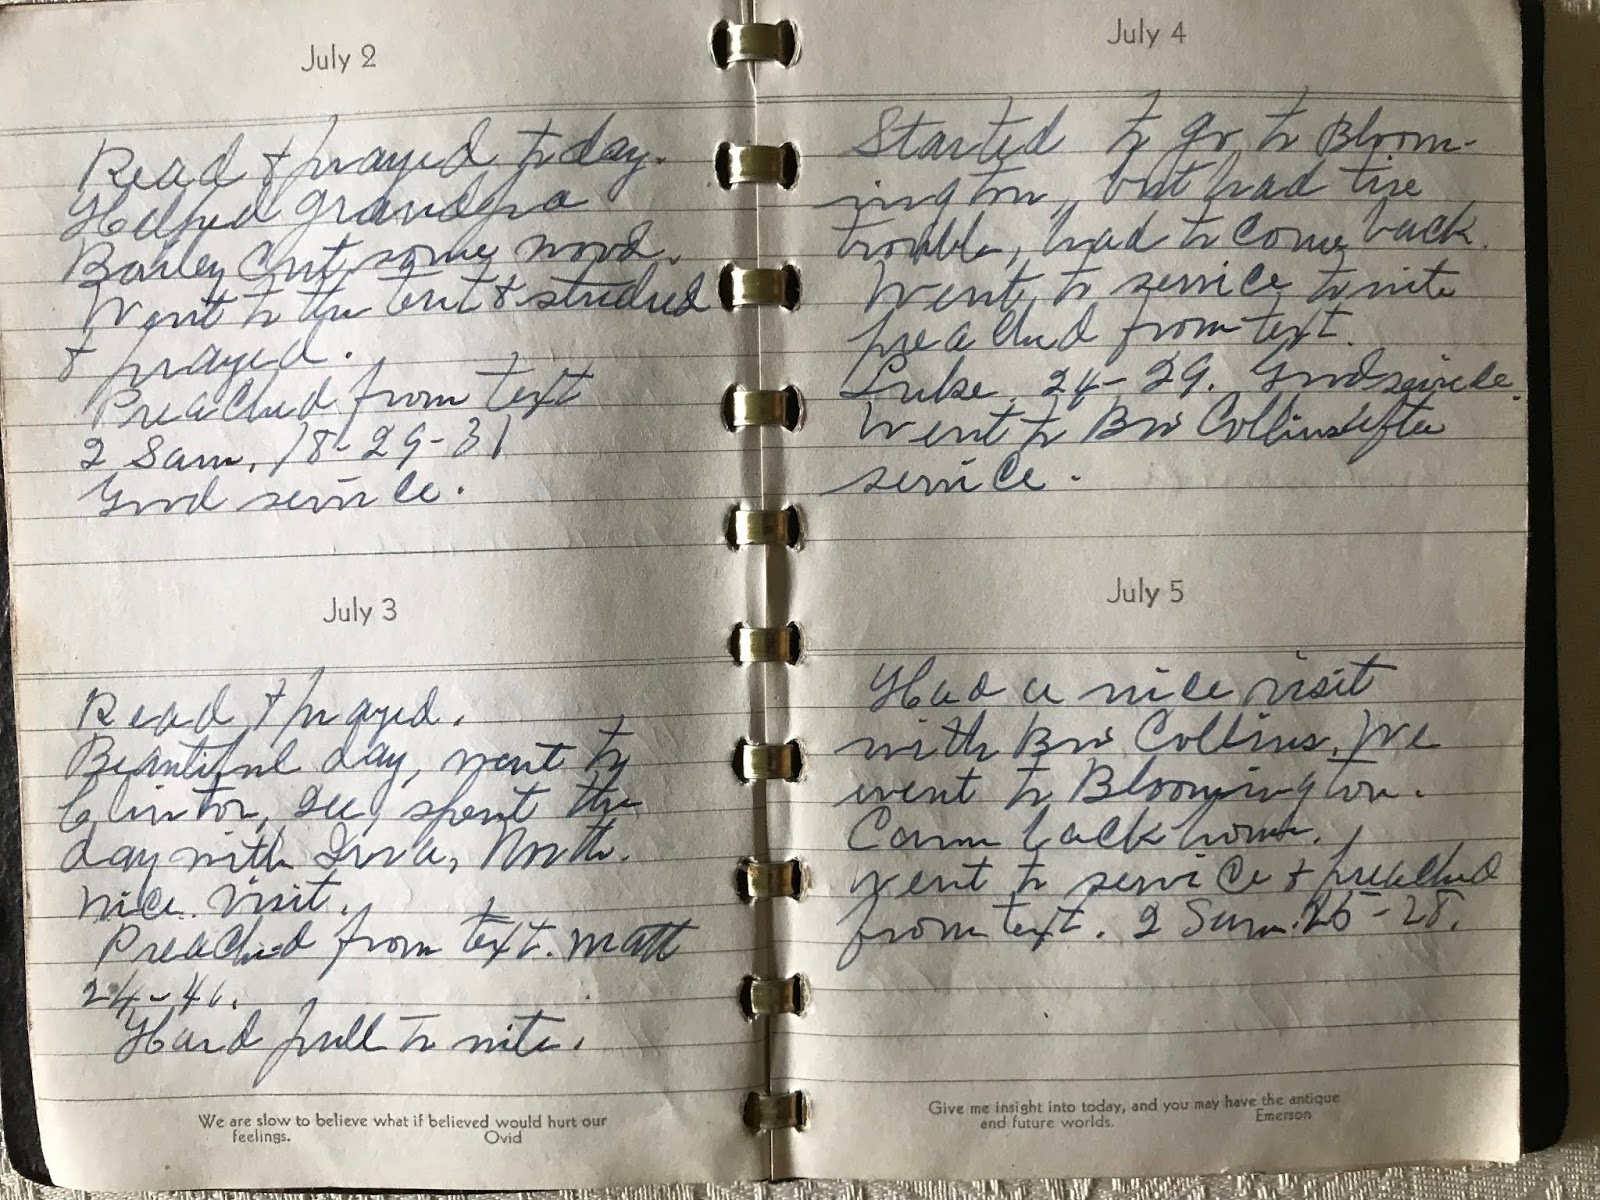 July 2
Read & prayed to day.
Helped grandpa
Barley cut some wood.
Went to the tent & studied
& prayed.
Preached from text
2 Sam. 18-29-31
Good service.
July 3
Read & prayed.
Beautiful day, went to
Clinton, Ill, spent the
day with Irva, North.
nice visit.
Preached from text. Matt
24-41.
Hard pull to nite.
We are slow to believe what if believed would hurt our
feelings. Ovid
July 4
Started to go to Bloom-
ington, but had tire
trouble, had to come back.
Went to service to nite
preached from text.
Luke 24-29. Good service.
Went to Bro Collins after
service.
July 5
Had a nice visit
with Bro Collins. We
went to Bloomington.
Came back home.
went to service & preached
from text. 2 Sam. 25-28.
Give me insight into today, and you may have the antique
and future worlds. Emerson